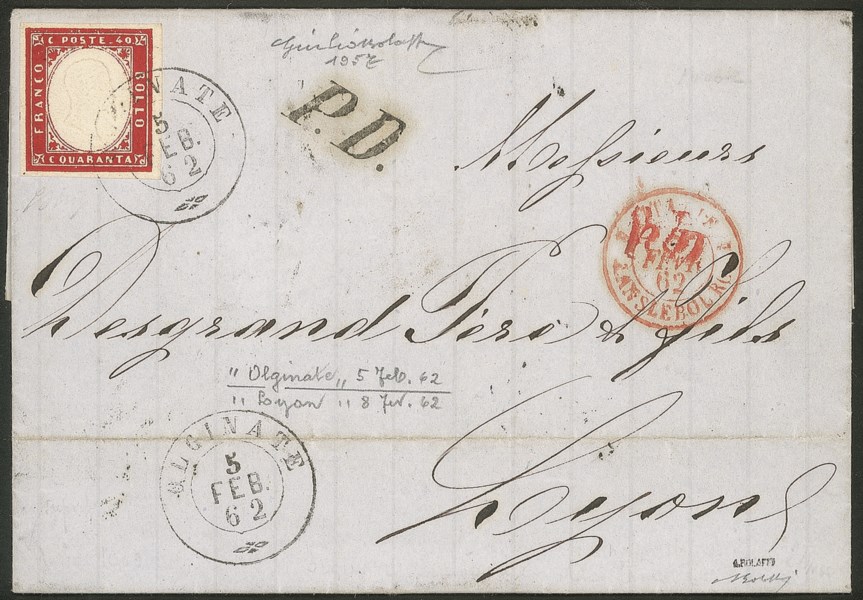 C POSTE. 40
FRANCO
BOLLO
C QUARANTA
OLGINATE
5
FEB.
62
P.D.
1957
Messieurs
P.D.
FEVR
62
LANSLEBOURG
Desgrand Père & Fils
" Olginate „ 5 Feb. 62
" Lyon " 8 Fev. 62
OLGINATE
5
FEB.
62
Lyon
A.BOLAFFI